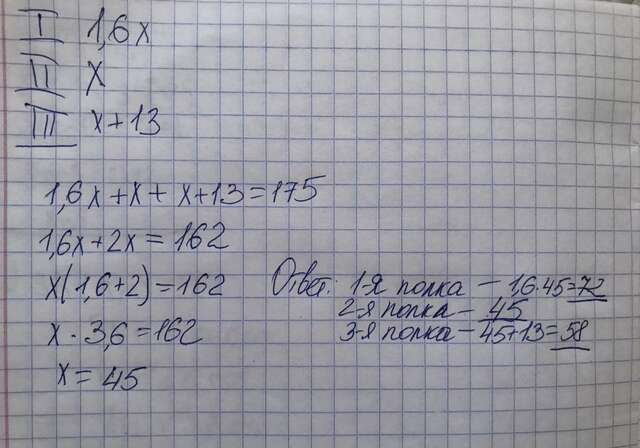 I 1,6x
II x
III x+13
1,6x+x+x+13=175
1,6x+2x=162
x(1,6+2)=162
x·3,6=162
x=45
Ответ: 1-я полка – 1,6·45=72
2-я полка – 45
3-я полка – 45+13=58